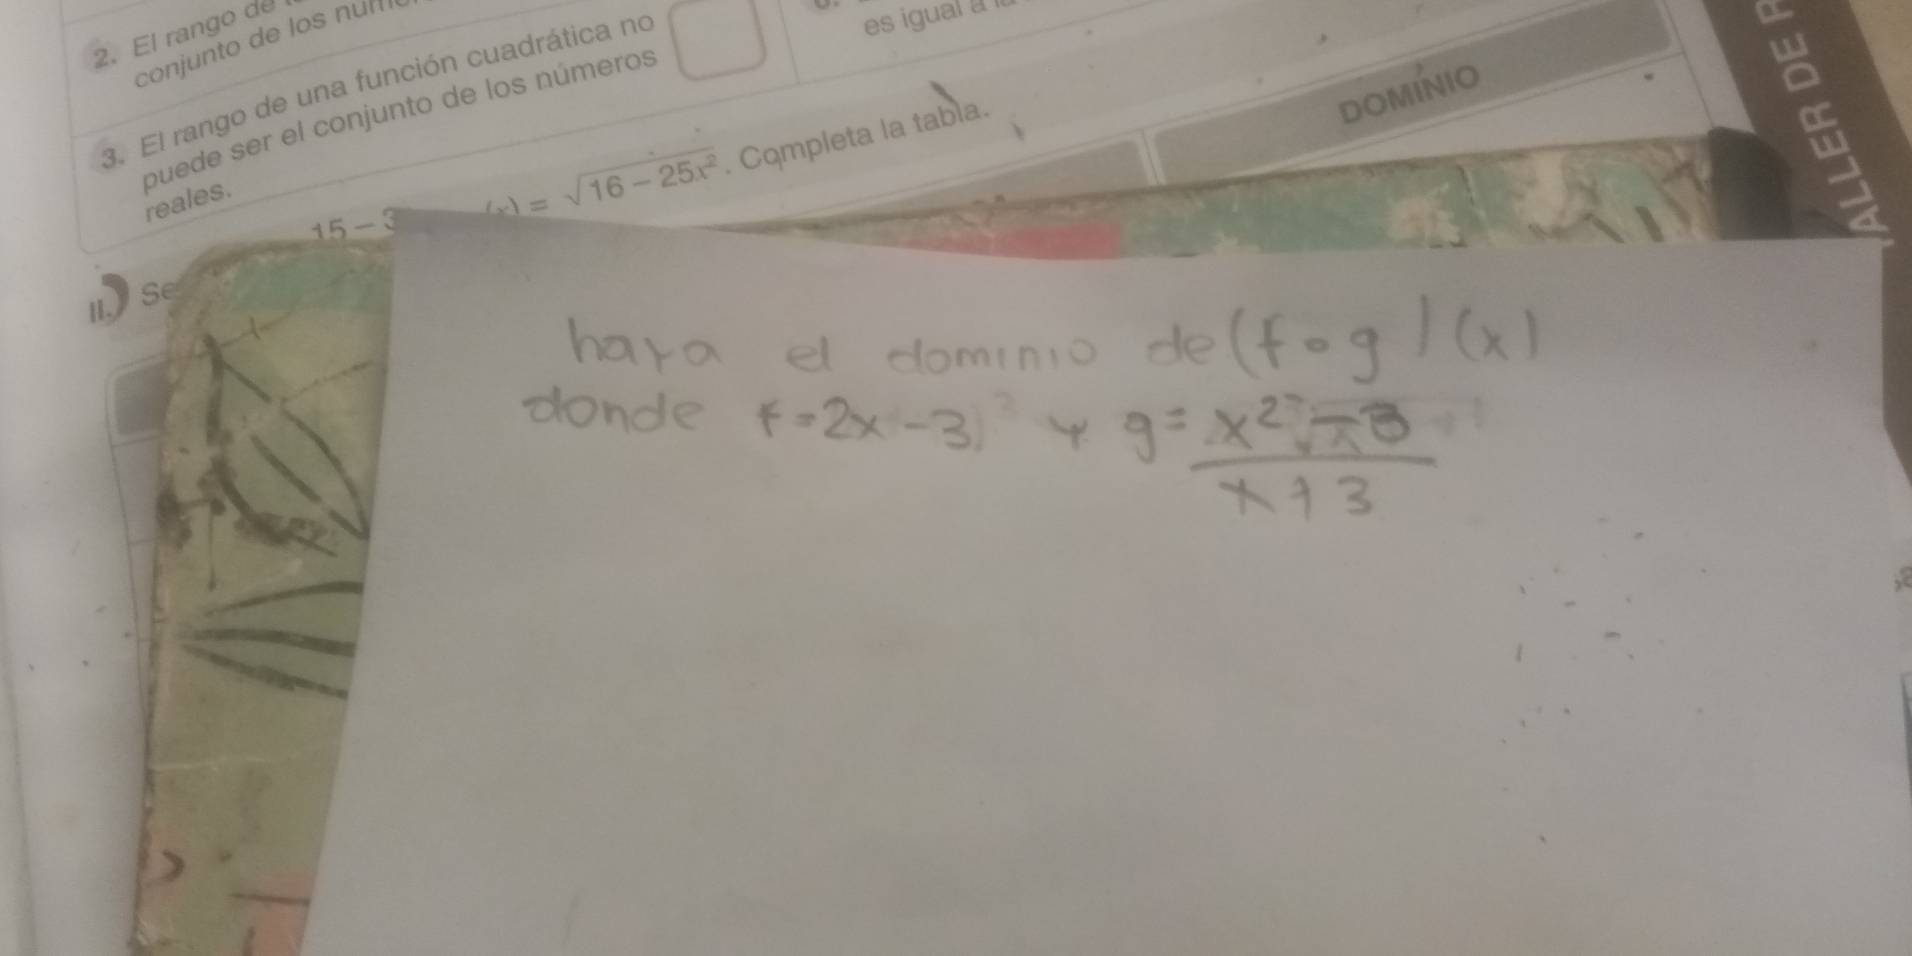 2. El rango de
conjunto de los
3. El rango de una función cuadrática no
puede ser el conjunto de los números
reales.
es igual a
II. Se
15 - 3
(x) = √16 - 25x². Completa la tabla.
DOMINIO
TALLER DE R
haya el dominio de (f∘g)(x)
donde f=2x-3 y g= x²-3
x+3